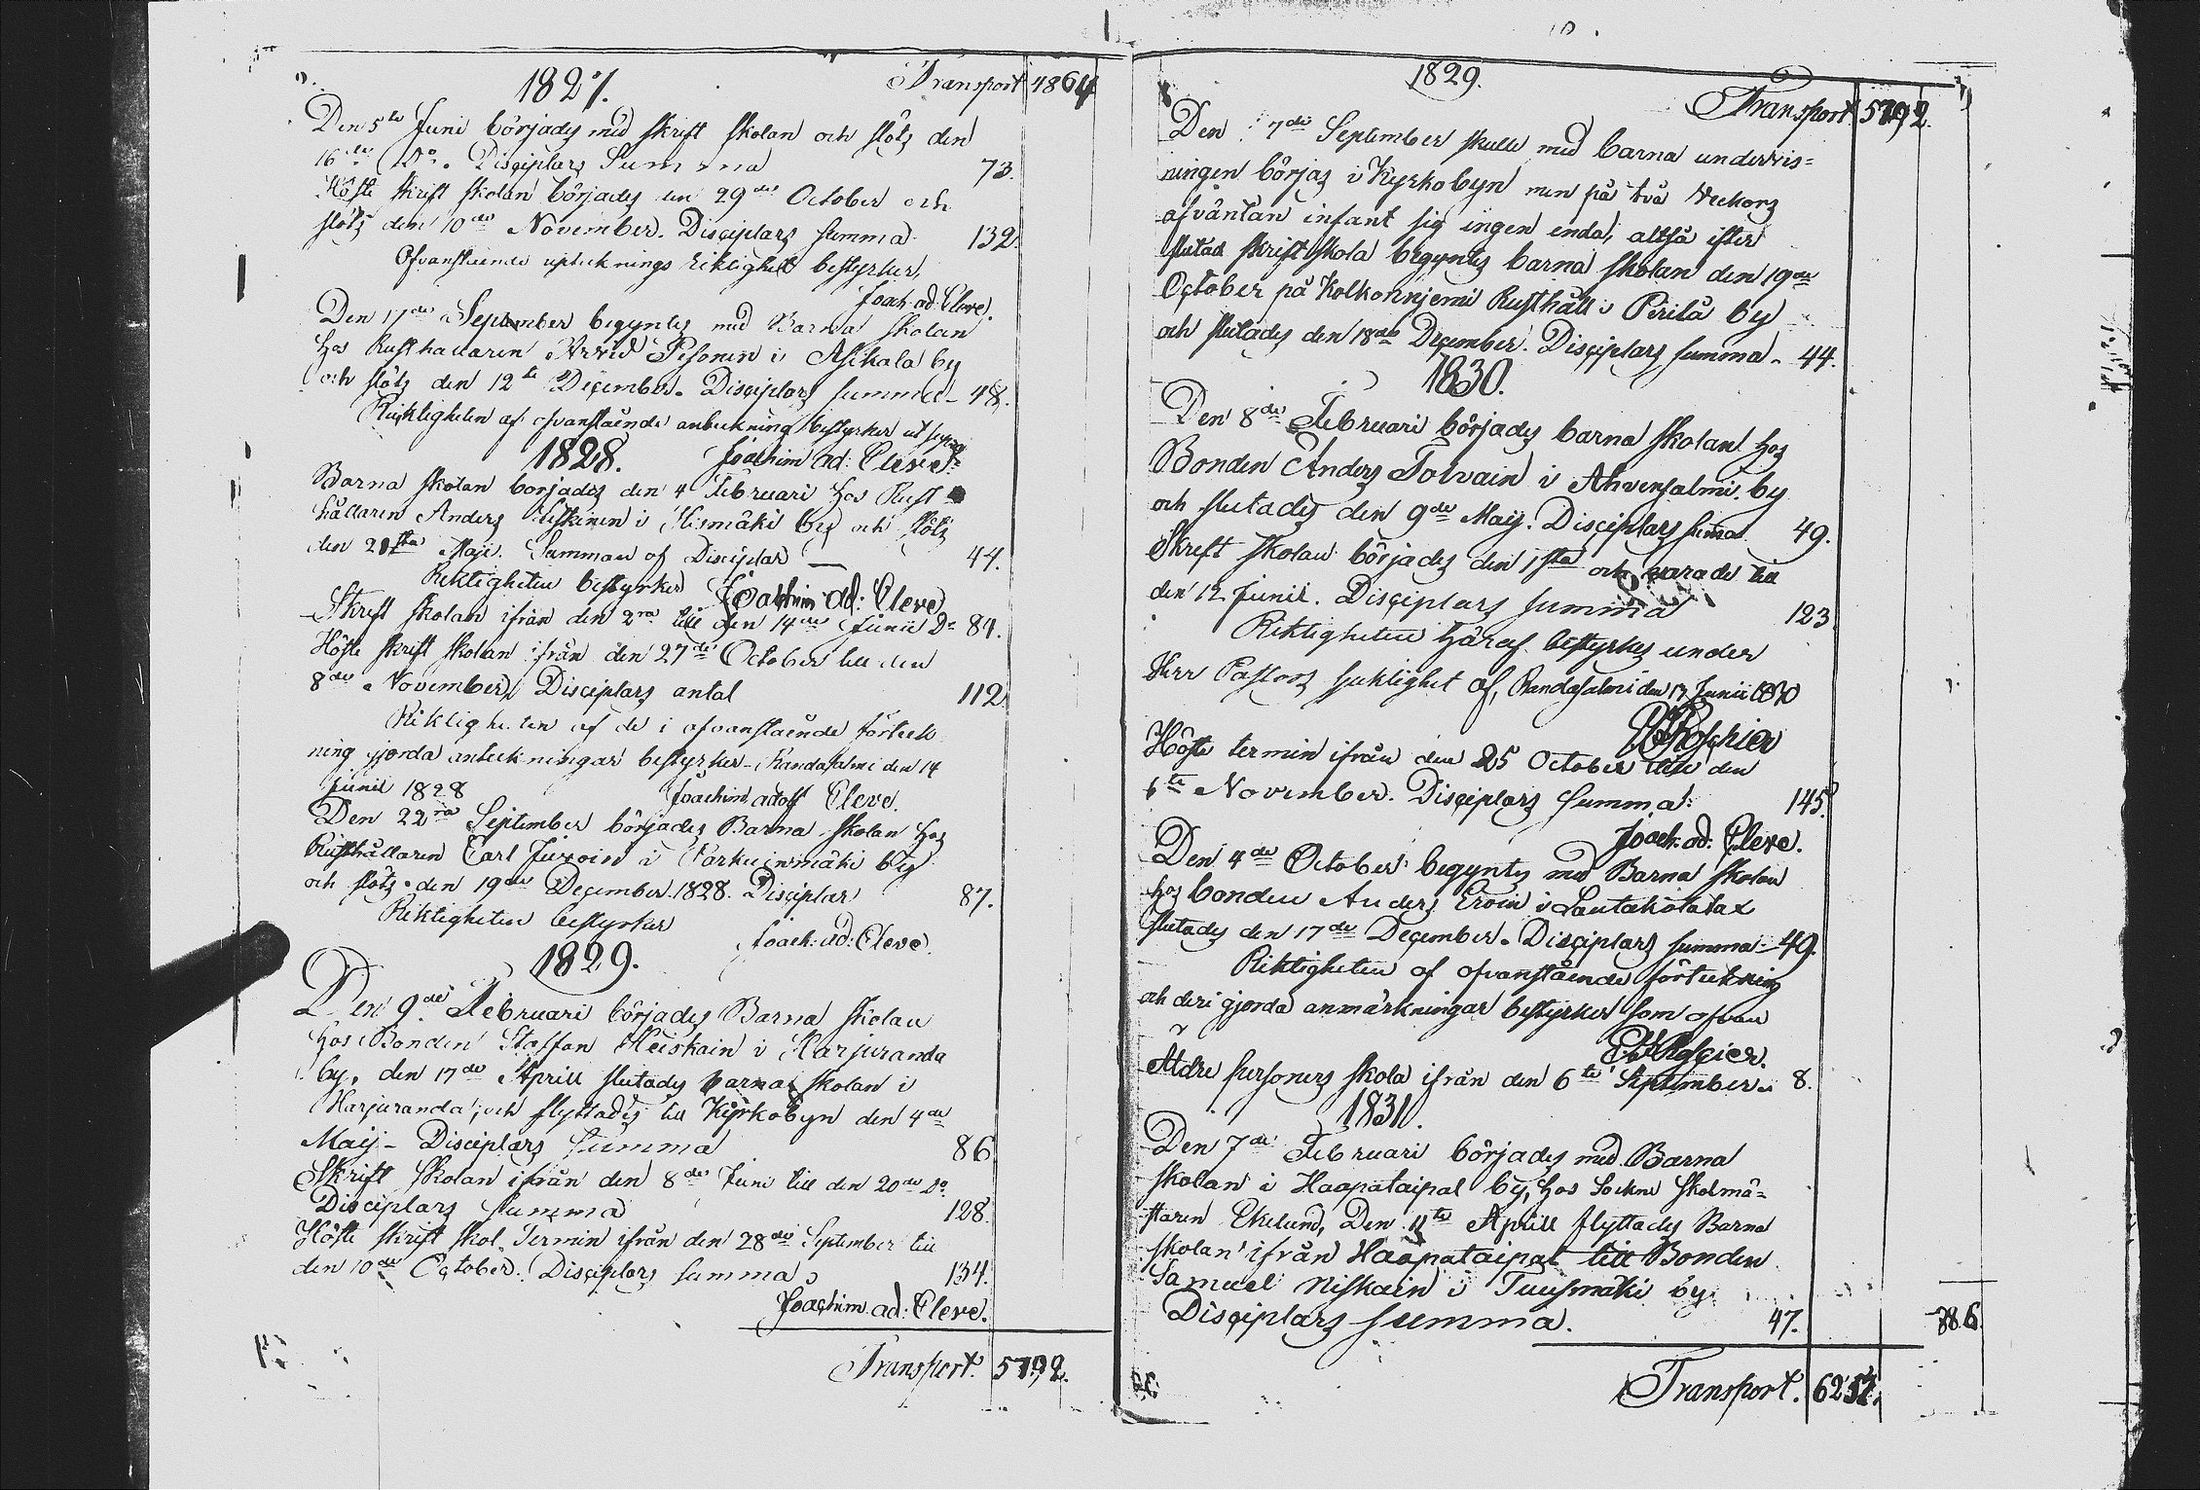 1827. Transport 4864
Den 5te Juni börjades med skrift skolan och slöts den
16de Do. Disciplars Summa 73.
Höste skrift skolan börjades den 29de October och
slöts den 10de November. Disciplars summa 132.
Ofvanstående upteknings riktighet bestyrker,
Joach. ad. Cleve.
Den 17de September begyntes med Barna skolan
hos Rusthållaren Arvid Pesonen i Asikala by
och slöts den 12te December. Disciplars summa 48.
Riktigheten af ofvanstående anteckning bestyrker ut supra
1828. Joachim ad: Cleve.
Barna skolan börjades den 4 Februari hos Rust
hållaren Anders i by och slöts
den 21sta Maji. Summan af Disciplar 44.
Riktigheten bestyrker Joachim ad: Cleve
Skrift skolan ifrån den 2ra till den 14de Junii Do 84.
Höste skrift skolan ifrån den 27de October till den
8de November, Disciplars antal 112
Riktigheten af de i ofvanstående förteck
ning gjorda anteckningar bestyrker Randasalmi den 14
Junii 1828 Joachim adolf Cleve.
Den 22ra September börjades Barna skolan hos
Rusthållaren Carl Juvoin i by
och slöts den 19de December 1828. Disciplar 87.
Riktigheten bestyrker Joach: ad: Cleve
1829.
Den 9de Februari börjades Barna skolan
hos Bonden Staffan Heiskain i Harjuranda
by, den 17de Aprill slutades barna skolan i
Harjuranda, och flyttades till Kyrkobyn den 4de
Maij - Disciplars summa 86
Skrift skolan ifrån den 8de Juni till den 20de Do.
Disciplars summa 128.
Höste skrift skol. Termin ifrån den 28de September till
den 10de October. Disciplars summa 134.
Joachim ad: Cleve.
Transport. 5792.
1829.
Transport 5792.
Den 7de September skulle med barna undervis=
ningen börjas i Kyrkobyn men på två veckors
afväntan infant sig ingen enda, altså efter
slutad skriftskola begyntes barna skolan den 19de
October på Kolkonnjemi Rusthåll i Pirilä by
och slutades den 18de December. Disciplars summa - 44.
1830.
Den 8de Februari börjades barna skolan hos
Bonden Anders Tolvain i Ahvensalmi by
och slutades den 9de Maij. Disciplars suma 49.
Skrift skolan börjades den 1sta och varade till
den 12 Junii. Disciplars summa 123
Riktigheten häraf bestyrkes under
Herr Pastors siuklighet af, Randasalmi den 17 Junii 1830
Höste termin ifrån den 25 October till den
6te November. Disciplars summa: 145.
Joach. ad: Cleve.
Den 4de October begyntes med Barna skolan
hos bonden Anders Eroin i Lautakotalax
slutades den 17de December. Disciplars summa - 49.
Riktigheten af ofvanstående förtekning
och deri gjorda anmärkningar bestyrker som ofvan
Äldre personers skola ifrån den 6te September 8.
1831.
Den 7de Februari börjades med Barna
skolan i Haapataipal by, hos Sockne skolmä=
staren Ekelund, Den 11te Aprill flyttades Barna
skolan ifrån Haapataipal till Bonden
Samuel Niskain i Tuusmäki by
Disciplars summa. 47. 386
Transport. 6257.